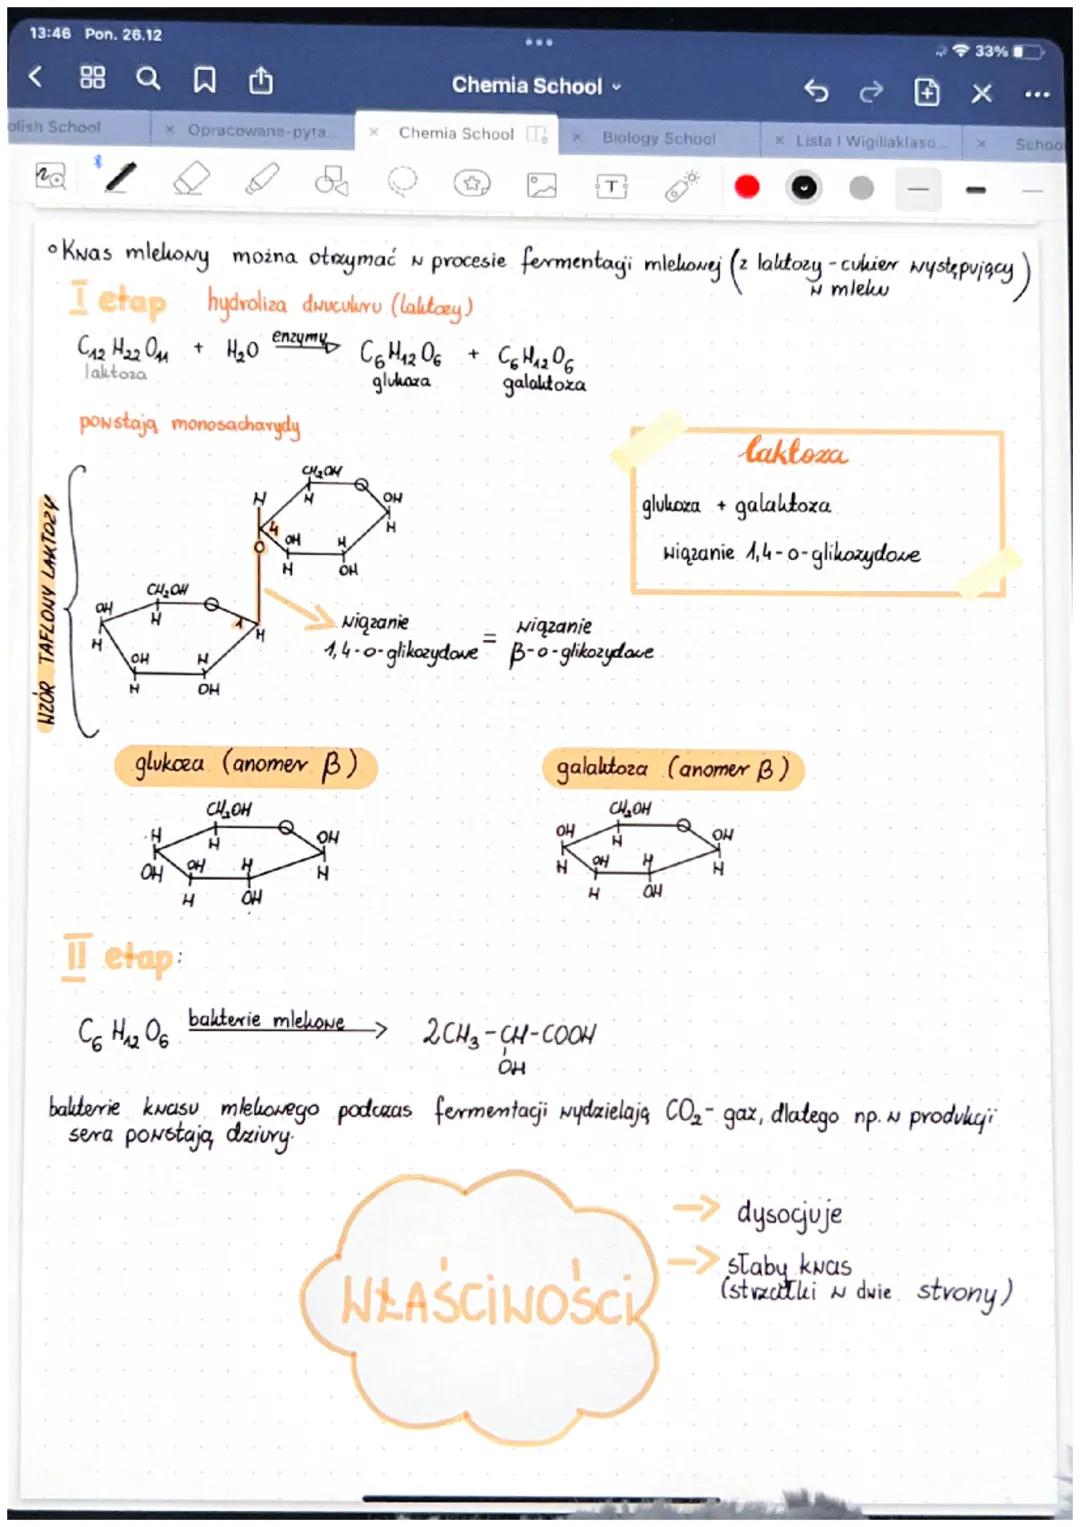 13:46 Pon. 26.12
33%
Chemia School
olish School
× Opracowane-pyta...
× Chemia School
× Biology School
× Lista I Wigiliaklaso...
× Schoo
T
° Kwas mlekowy można otrzymać w procesie fermentacji mlekowej (z laktozy - cukier występujący w mleku)
I etap hydroliza dwucukru (laktozy)
C₁₂H₂₂O₁₁ + H₂O enzymy→ C₆H₁₂O₆ + C₆H₁₂O₆
laktoza glukoza galaktoza
powstają monosacharydy
laktoza
glukoza + galaktoza
wiązanie 1,4-o-glikozydowe
WZÓR TAFLONY LAKTOZY
CH₂OH
H H OH
4 OH H H
O
H OH
CH₂OH
OH H 1 H
H OH H
H OH
wiązanie 1,4-o-glikozydowe = wiązanie β-o-glikozydowe
glukoza (anomer β)
CH₂OH
H H OH
OH OH H H
H OH
galaktoza (anomer β)
CH₂OH
OH H OH
H OH H H
H OH
II etap:
C₆H₁₂O₆ bakterie mlekowe→ 2CH₃-CH-COOH
OH
bakterie kwasu mlekowego podczas fermentacji wydzielają CO₂- gaz, dlatego np. w produkcji
sera powstają dziury.
WŁAŚCIWOŚCI
→ dysocjuje
→ słaby kwas
(strzałki w dwie strony)